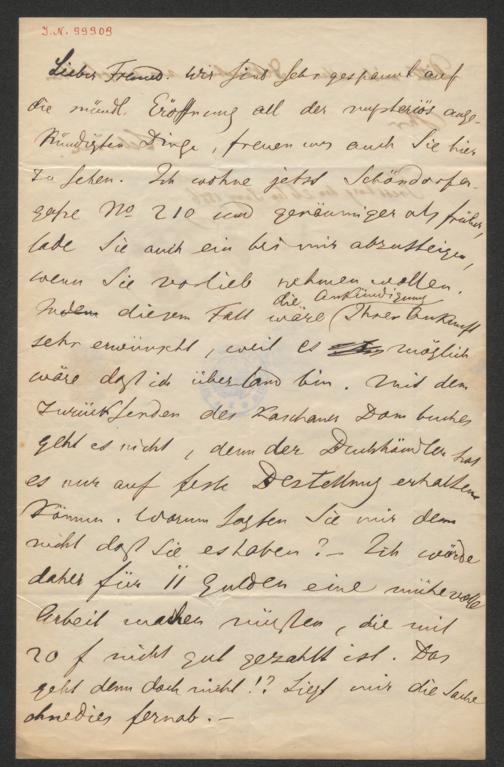 J.N. 99909
Lieber Freund. Wir sind sehr gespannt auf
die mündl. Eröffnung all der mysteriös ange-
kündigten Dinge, freuen uns auch Sie hier
zu sehen. Ich wohne jetzt Schöndorfer-
gasse No 210 und geräumiger als früher,
lade Sie auch ein bei mir abzusteigen,
wenn Sie vorlieb nehmen wollen.
In diesem Fall wäre die Ankündigung Ihrer Ankunft
sehr erwünscht, weil es möglich
wäre daß ich über Land bin. Mit dem
Zurücksenden des Kaschauer Dombuches
geht es nicht, denn der Buchhändler hat
es nur auf feste Bestellung erhalten
können. Warum sagten Sie mir denn
nicht daß Sie es haben? – Ich würde
daher für 11 Gulden eine mühevolle
Arbeit machen müssen, die mit
20 f nicht gut gezahlt ist. Das
geht denn doch nicht!? Liegt mir die Sache
ohnedies fernab. –